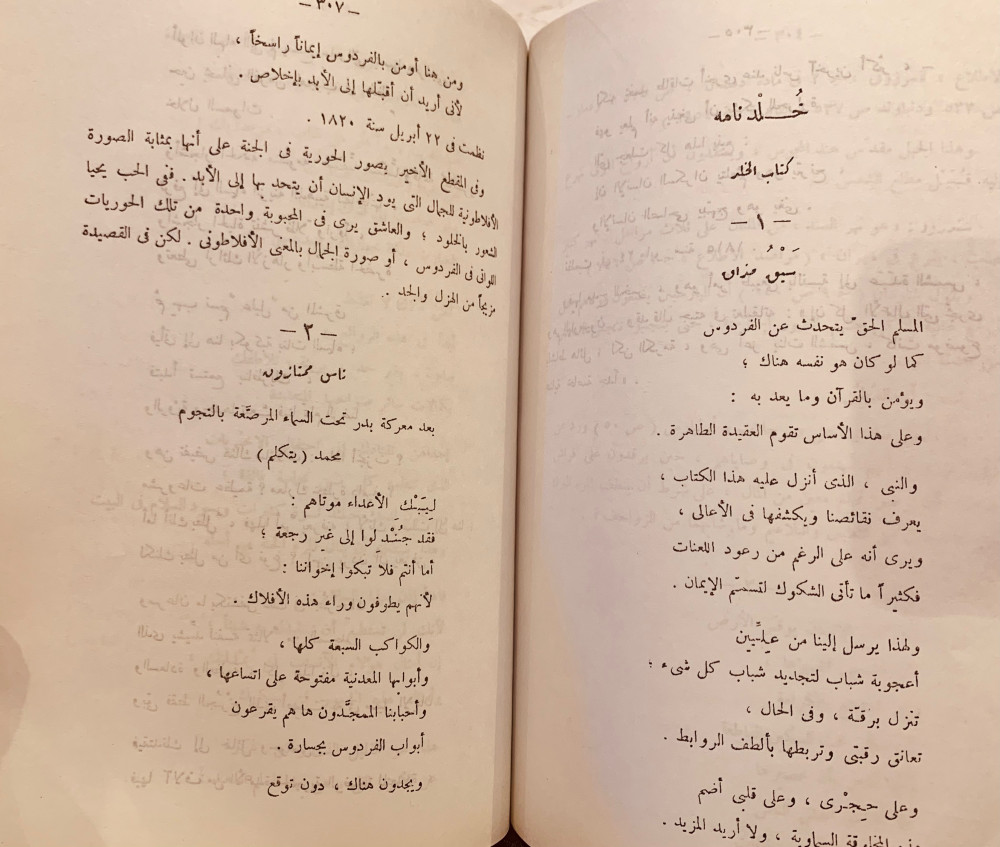 خُـلْد نامه
كتاب الخلد
— ١ —
سَبْقُ مذاق
المسلم الحقّ يتحدث عن الفردوس
كما لو كان هو نفسه هناك ؛
ويؤمن بالقرآن وما يعد به :
وعلى هذا الأساس تقوم العقيدة الطاهرة .
والنبى ، الذى أنزل عليه هذا الكتاب ،
يعرف نقائصنا ويكشفها فى الأعالى ،
ويرى أنه على الرغم من رعود اللعنات
فكثيراً ما تأتى الشكوك لتسمّم الإيمان .
ولهذا يرسل إلينا من عِلِّيين
أعجوبة شباب لتجديد شباب كل شىء ؛
تنزل برقّة ، وفى الحال ،
تعانق رقبتى وتربطها بألطف الروابط .
وعلى حِجْرى ، وعلى قلبى أضم
المخلوقة السماوية ، ولا أريد المزيد .
— ٣٠٧ —
ومن هنا أومن بالفردوس إيماناً راسخاً ،
لأنى أريد أن أقبّلها إلى الأبد بإخلاص .
نظمت فى ٢٢ أبريل سنة ١٨٢٠ .
وفى المقطع الأخير يصور الحورية فى الجنة على أنها بمثابة الصورة
الأفلاطونية للجمال التى يود الإنسان أن يتحد بها إلى الأبد . ففى الحب يحيا
الشعور بالخلود ؛ والعاشق يرى فى المحبوبة واحدة من تلك الحوريات
اللواتى فى الفردوس ، أو صورة الجمال بالمعنى الأفلاطونى . لكن فى القصيدة
مزيجاً من الهزل والجد ..
— ٢ —
ناس ممتازون
بعد معركة بدر تحت السماء المرصَّعة بالنجوم
محمد ( يتكلم )
لِيَبْك الأعداء موتاهم :
فقد جُنْدِلوا إلى غير رجعة ؛
أما أنتم فلا تبكوا إخواننا :
لأنهم يطوفون وراء هذه الأفلاك .
والكواكب السبعة كلها ،
وأبوابها المعدنية مفتوحة على اتساعها ،
وأحبابنا الممجَّدون ها هم يقرعون
أبواب الفردوس بجسارة .
ويجدون هناك ، دون توقع